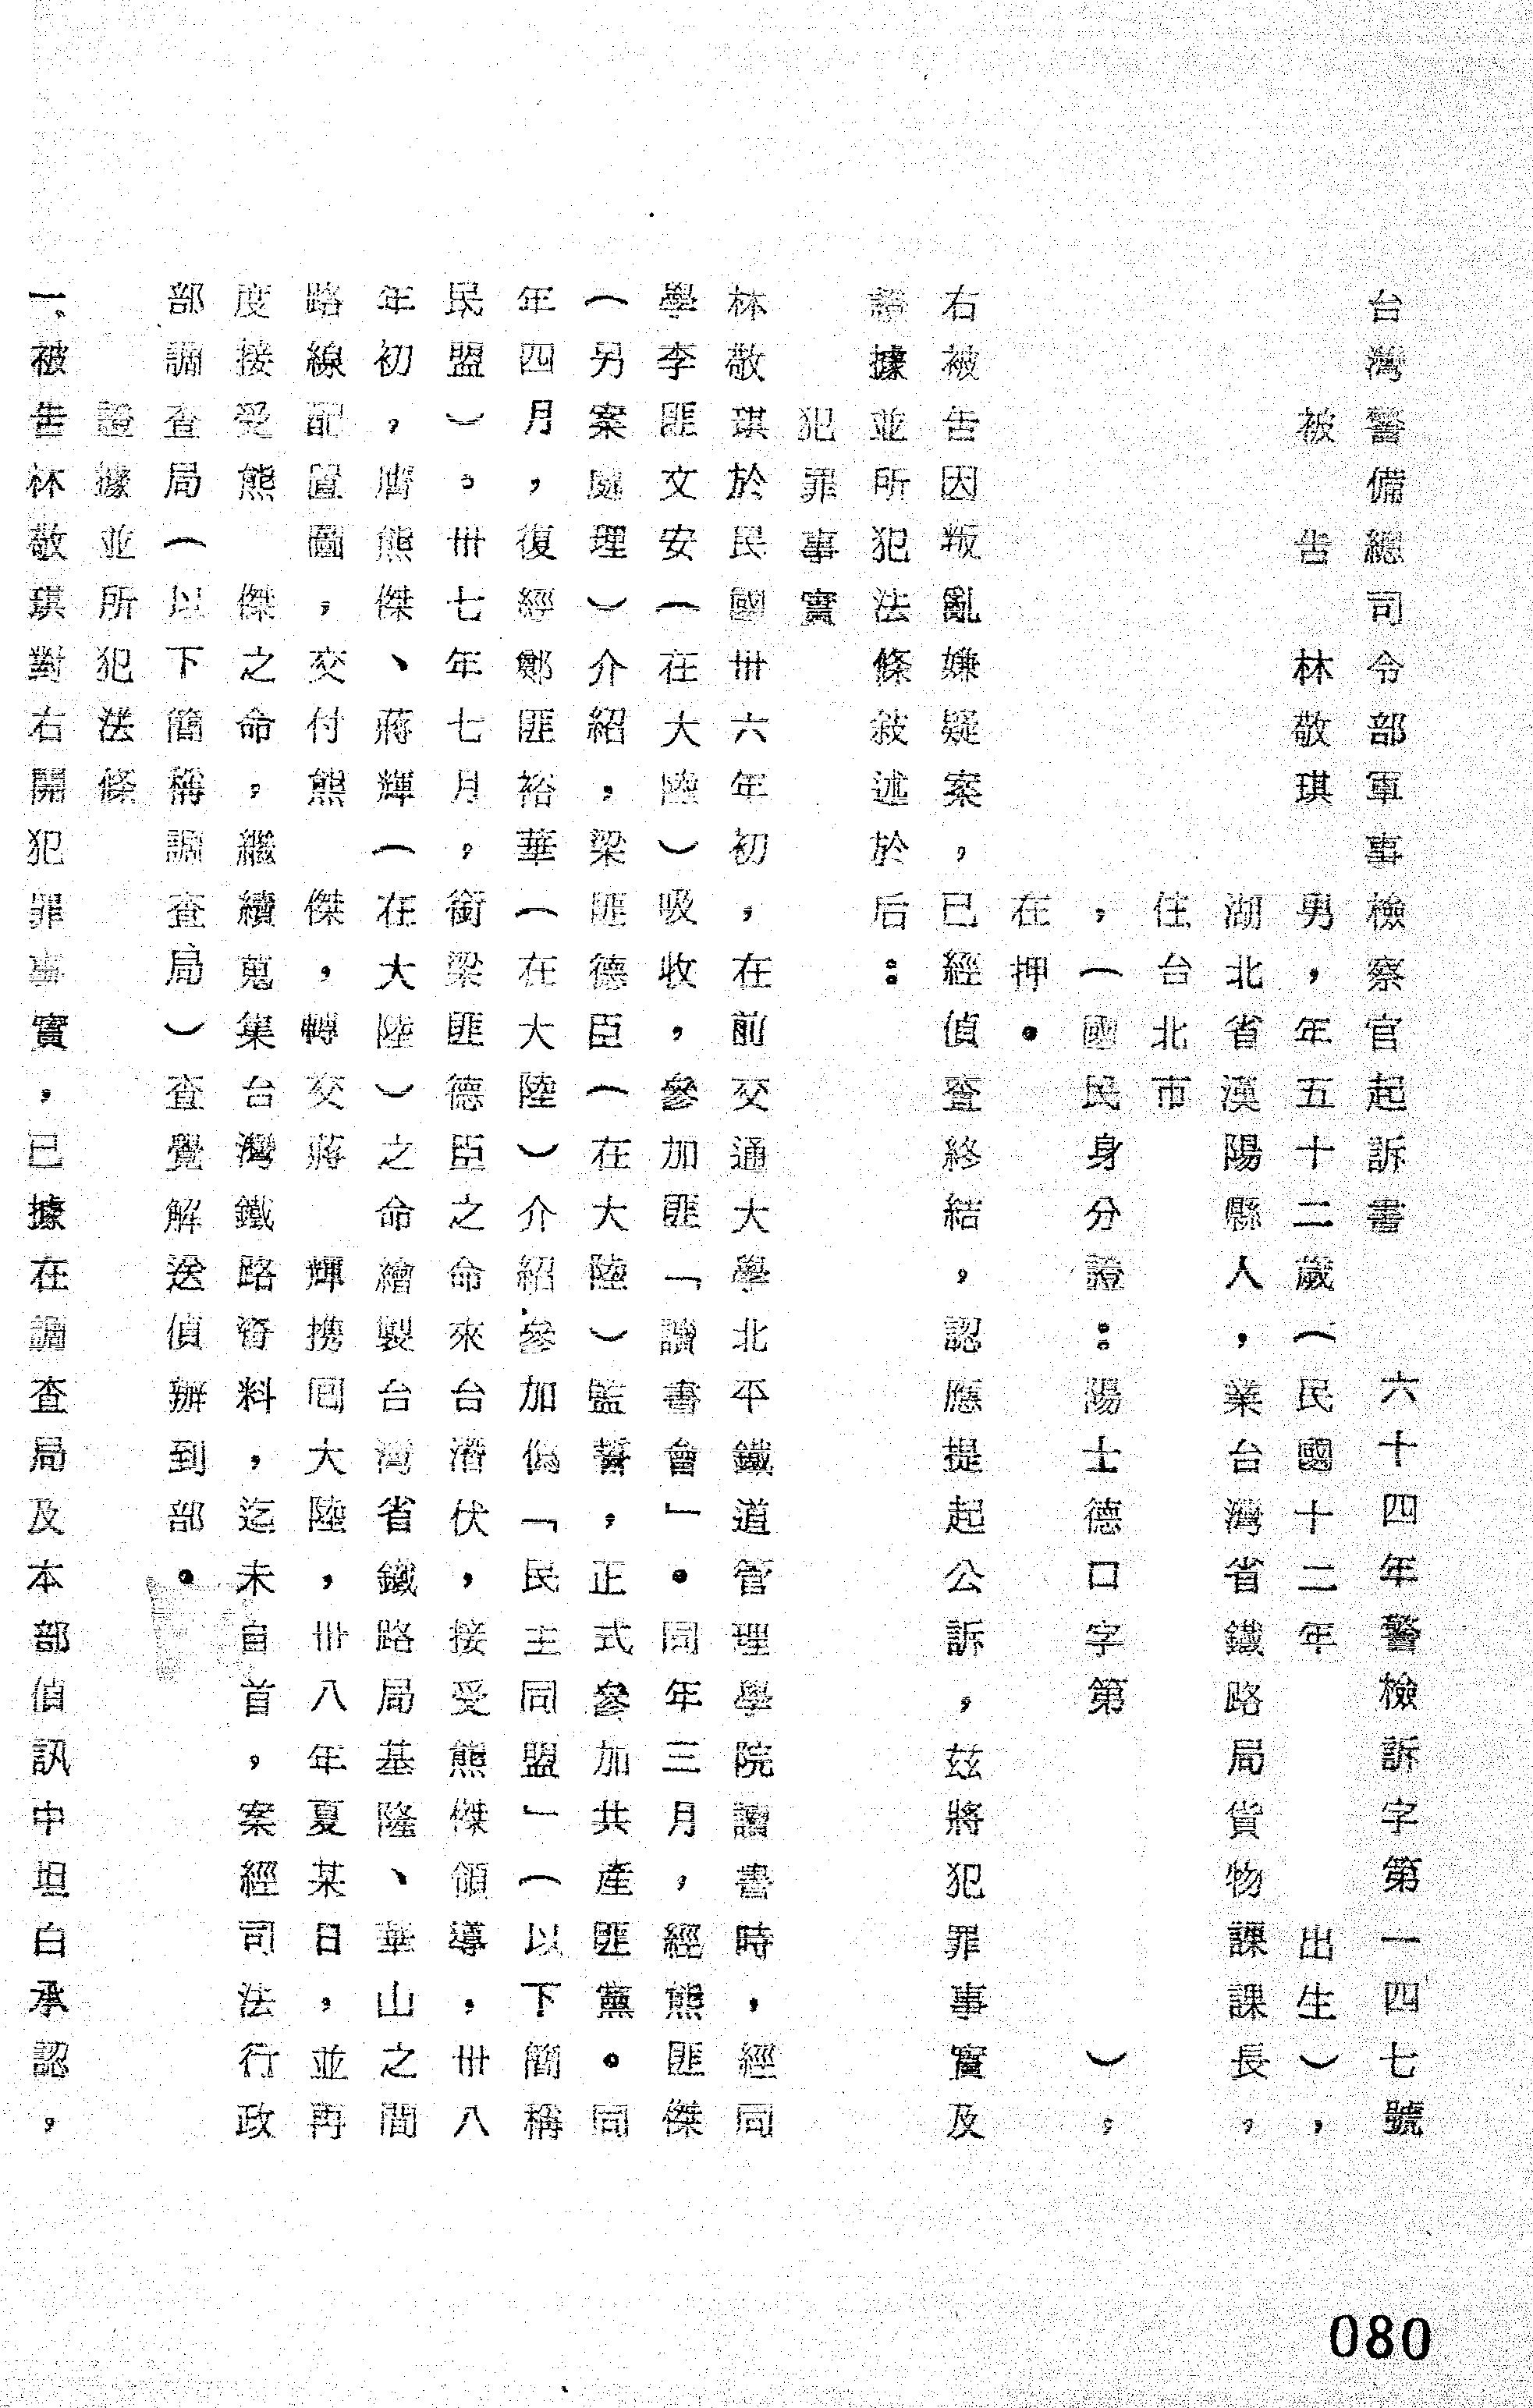 台灣警備總司令部軍事檢察官起訴書 六十四年警檢訴字第一四七號
被告 林敬琪 男，年五十二歲（民國十二年 出生），
湖北省漢陽縣人，業台灣省鐵路局貨物課課長，
住台北市
，（國民身分證：陽士德口字第 ），
在押。
右被告因叛亂嫌疑案，已經偵查終結，認應提起公訴，茲將犯罪事實及
證據並所犯法條敍述於后：
犯罪事實
林敬琪於民國卅六年初，在前交通大學北平鐵道管理學院讀書時，經同
學李匪文安（在大陸）吸收，參加匪「讀書會」。同年三月，經熊匪傑
（另案處理）介紹，梁匪德臣（在大陸）監誓，正式參加共產匪黨。同
年四月，復經鄭匪裕華（在大陸）介紹參加偽「民主同盟」（以下簡稱
民盟）。卅七年七月，銜梁匪德臣之命來台潛伏，接受熊傑領導，卅八
年初，膺熊傑、蔣輝（在大陸）之命繪製台灣省鐵路局基隆、華山之間
路線配置圖，交付熊傑，轉交蔣輝携回大陸，卅八年夏某日，並再
度接受熊傑之命，繼續蒐集台灣鐵路資料，迄未自首，案經司法行政
部調查局（以下簡稱調查局）查覺解送偵辦到部。
證據並所犯法條
一、被告林敬琪對右開犯罪事實，已據在調查局及本部偵訊中坦白承認，
080